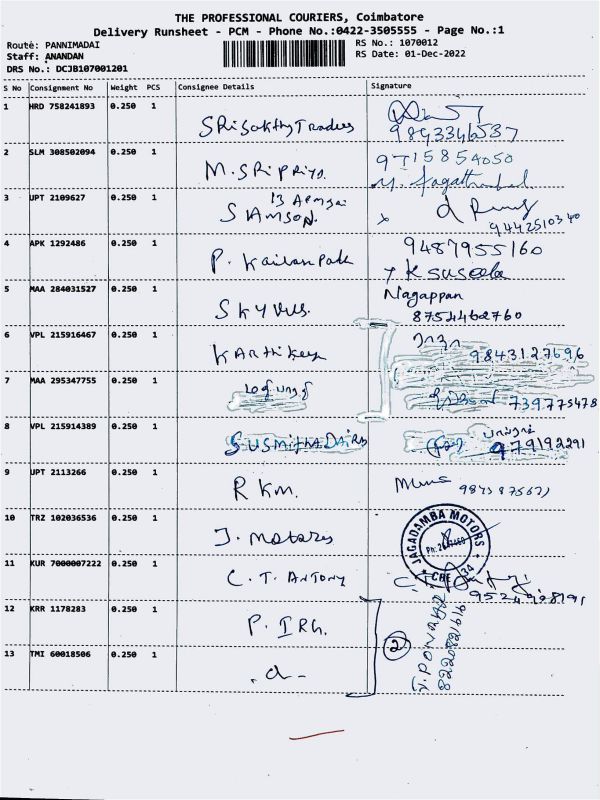 THE PROFESSIONAL COURIERS, Coimbatore
Delivery Runsheet - PCM - Phone No.:0422-3505555 - Page No.:1
Route: PANNIMADAI
RS No.: 1070012
Staff: ANANDAN
RS Date: 01-Dec-2022
DRS No.: DCJB107001201
S No Consignment No Weight PCS Consignee Details Signature
1 HRD 758241893 0.250 1 Srisakthy Traders
9843346537
2 SLM 308502094 0.250 1 M. Sripriya 9715854050
3 UPT 2109627 0.250 1 SAMSON
9442510340
4 APK 1292486 0.250 1 P. 9487955160
K Suseela
5 MAA 284031527 0.250 1 Nagappan
8754462760
6 VPL 215916467 0.250 1 Karthikeya ராஜா
9843127696
7 MAA 295347755 0.250 1
739775478
8 VPL 215914389 0.250 1 SUSMITHA DAIRS
979192291
9 UPT 2113266 0.250 1 RKM.
10 TRZ 102036536 0.250 1 J. Motores JAGADAMBA MOTORS
11 KUR 7000007222 0.250 1 C. T. ANTONY
12 KRR 1178283 0.250 1 P. IRG.
2
J. PONRAJ
8220821616
13 TMI 60018506 0.250 1 - d -